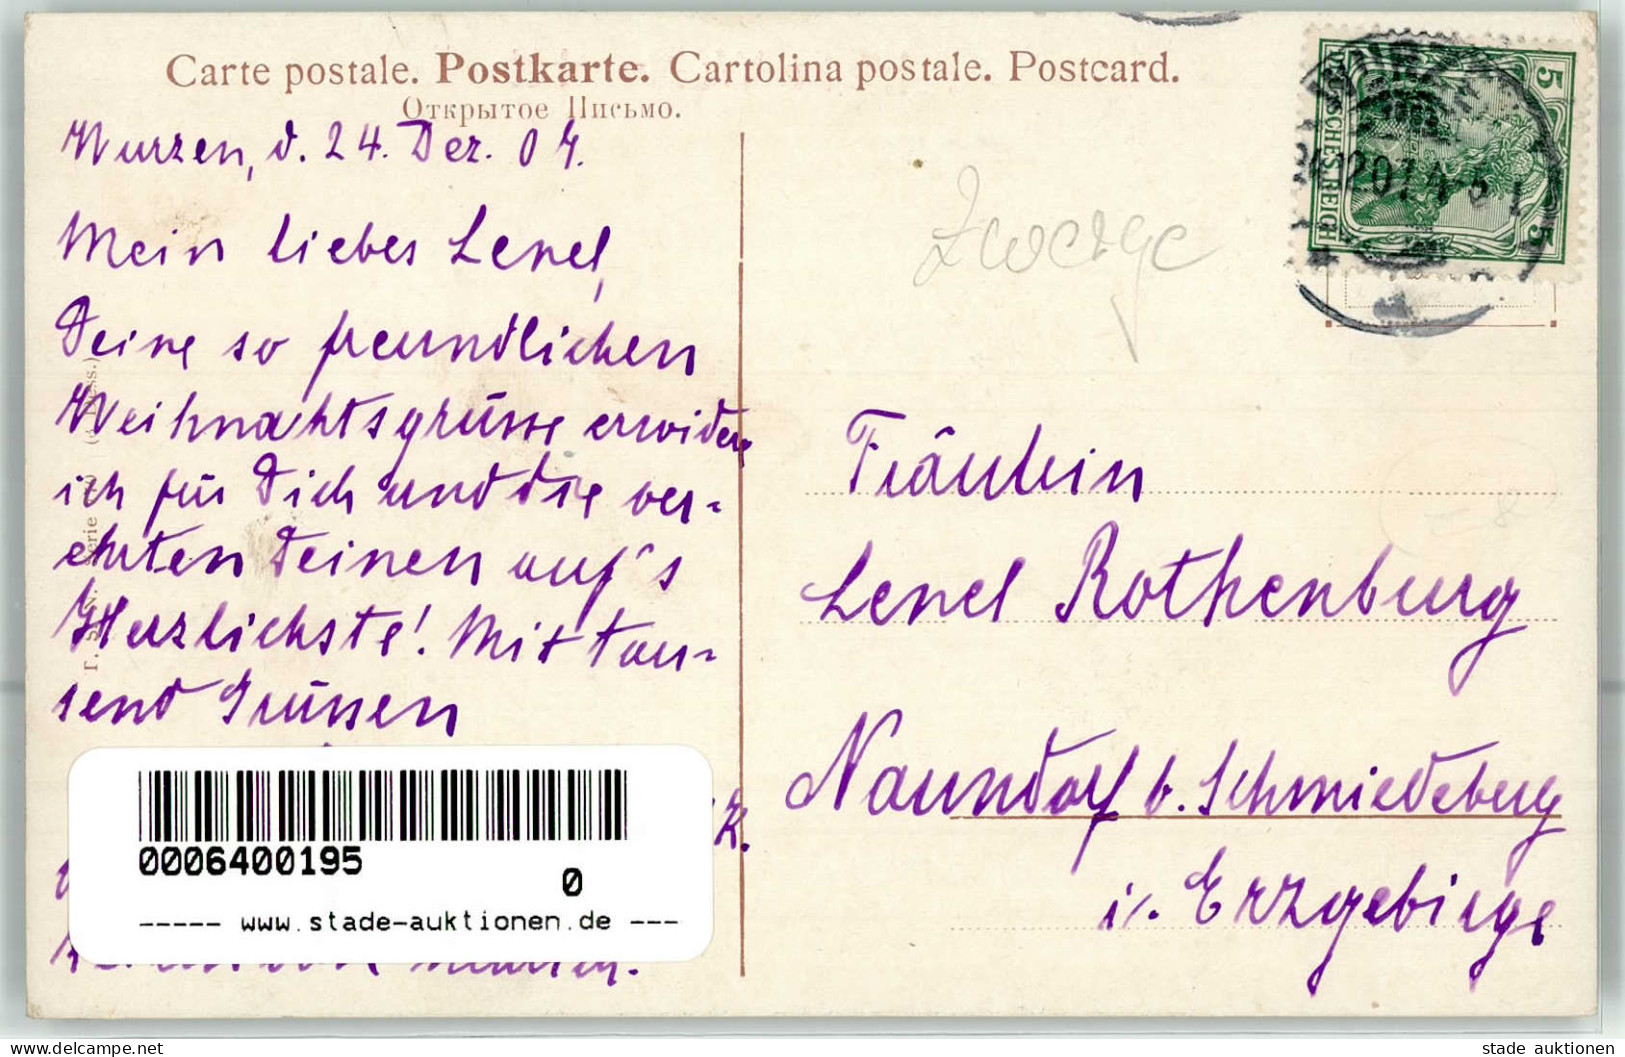 Carte postale. Postkarte. Cartolina postale. Postcard.
Открытое Письмо.
Wurzen, d. 24. Dez. 07.
Mein liebes Lenel,
Deine so freundlichen
Weihnachtsgrüsse erwidere
ich für Dich und die ver-
ehrten Deinen auf's
Herzlichste! Mit tau-
send Grüssen
0006400195
0
----- www.stade-auktionen.de ---
Zwerge
5
DEUTSCHES REICH
5
Fräulein
Lenel Rothenburg
Naundorf b. Schmiedeberg
i/. Erzgebirge
stade auktionen
https://www.delcampe.net